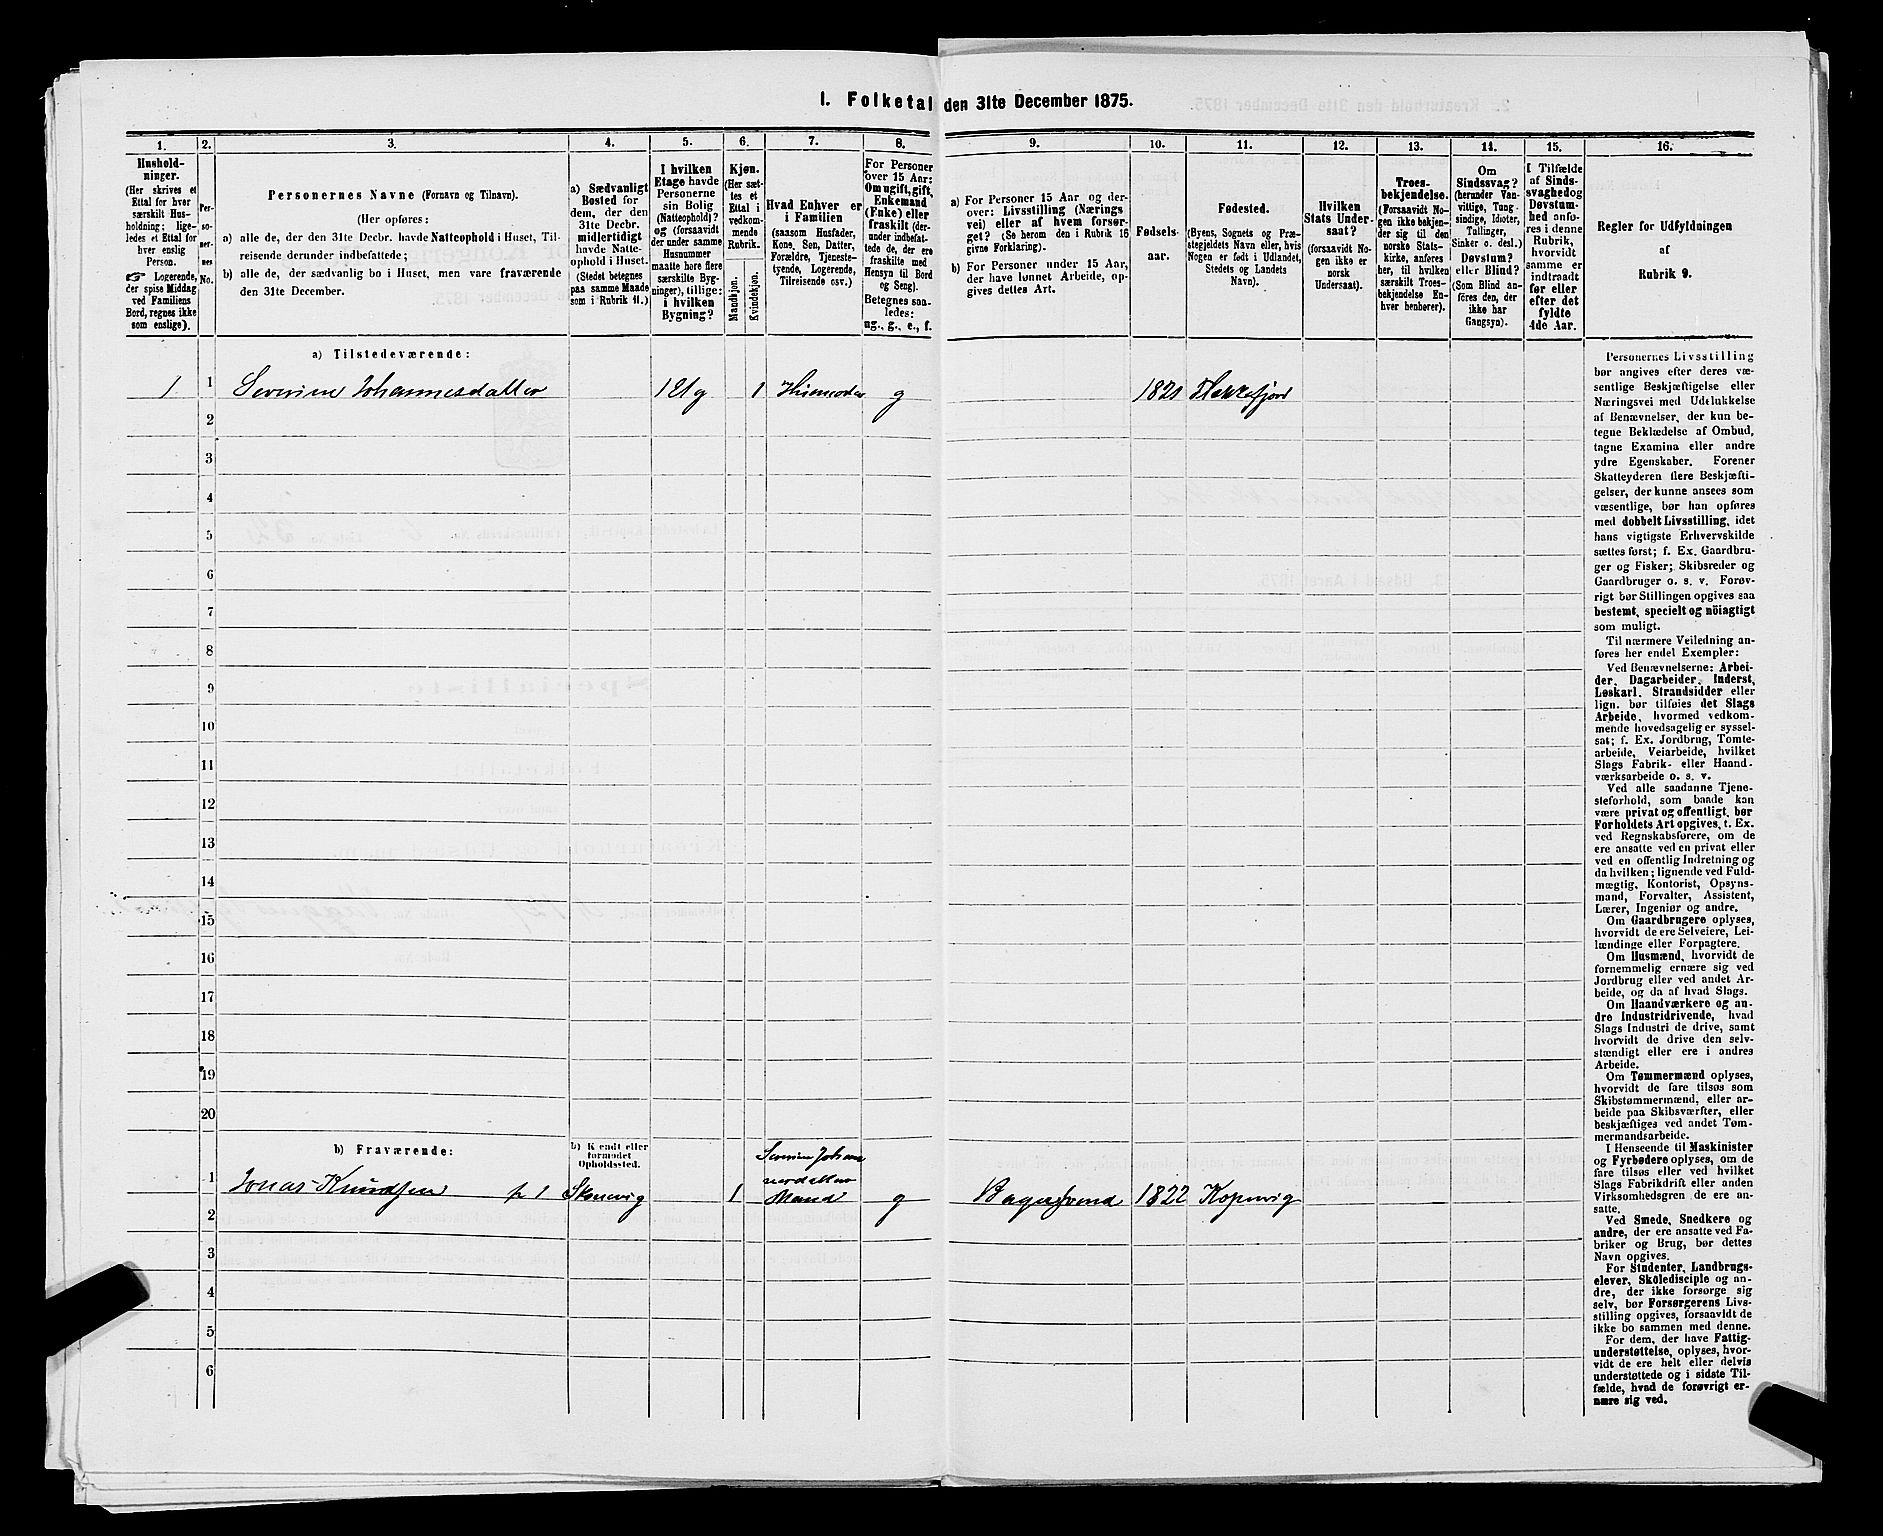 1. Folketal den 31te December 1875.
1.
Hushold-
ninger.
(Her skrives et
Ettal for hver
særskilt Hus-
holdning; lige-
ledes et Ettal for
hver enslig
Person.
☞ Logerende,
der spise Middag
ved Familiens
Bord, regnes ikke
som enslige).
2.
Per-
so-
ner-
nes
No.
3.
Personernes Navne (Fornavn og Tilnavn).
(Her opføres:
a) alle de, der den 31te Decbr. havde Natteophold i Huset, Til-
reisende derunder indbefattede;
b) alle de, der sædvanlig bo i Huset, men vare fraværende
den 31te December.
4.
a) Sædvanligt
Bosted for
dem, der den
31te Decbr.
midlertidigt
havde Natte-
ophold i Huset.
(Stedet betegnes
paa samme Maade
som i Rubrik 11.)
5.
I hvilken
Etage havde
Personerne
sin Bolig
(Natteophold)?
og (forsaavidt
der under samme
Husnummer
maatte høre flere
særskilte Byg-
ninger), tillige:
i hvilken
Bygning?
6.
Kjøn.
(Her sæt-
tes et
Ettal i
vedkom-
mende
Rubrik.
Mandkjøn.
Kvindekjøn.
7.
Hvad Enhver er
i Familien
(saasom Husfader,
Kone, Søn, Datter,
Forældre, Tjeneste-
tyende, Logerende,
Tilreisende osv.)
8.
For Personer
over 15 Aar:
Om ugift, gift,
Enkemand
(Enke) eller
fraskilt (der-
under indbefat-
tede de, der ere
fraskilte med
Hensyn til Bord
og Seng).
Betegnes saa-
ledes:
ug., g., e., f.
9.
a) For Personer 15 Aar og der-
over: Livsstilling (Nærings
vei) eller af hvem forsør-
get? (Se herom den i Rubrik 16
givne Forklaring).
b) For Personer under 15 Aar,
der have lønnet Arbeide, op-
gives dettes Art.
10.
Fødsels-
aar.
11.
Fødested.
(Byens, Sognets og Præ-
stegjeldets Navn eller, hvis
Nogen er født i Udlandet,
Stedets og Landets
Navn).
12.
Hvilken
Stats Under-
saat?
(forsaavidt No-
gen ikke er
norsk
Undersaat).
13.
Troes-
bekjendelse.
(Forsaavidt No-
gen ikke bekjen-
der sig til den
norske Stats-
kirke, anføres
her, til hvilken
særskilt Troes-
bekjendelse En-
hver henhører).
14.
Om
Sindssvag?
(herunder Van-
vittige, Tung-
sindige, Idioter,
Tullinger,
Sinker o. desl.)
Døvstum?
eller Blind?
(Som Blind an-
føres den, der
ikke har
Gangsyn).
15.
I Tilfælde
af Sinds-
svaghed og
Døvstum-
hed anfø-
res i denne
Rubrik,
hvorvidt
samme er
indtraadt
før eller
efter det
fyldte
4de Aar.
16.
Regler for Udfyldningen
af
Rubrik 9.
a) Tilstedeværende:
1 1 Severine Johannesdatter 1 Etg 1 Husmoder g 1821 Flekkefjord
2
3
4
5
6
7
8
9
10
11
12
13
14
15
16
17
18
19
20
b) Fraværende:
b) Kjendt eller
formodet
Opholdssted.
1 Jonas Knudsen h 1 Skonevig 1 Severine Johan
nesdatter
Mand g Bagersvend 1822 Kopervig
2
3
4
5
6
Personernes Livsstilling
bør angives efter deres væ-
sentlige Beskjæftigelse eller
Næringsvei med Udelukkelse
af Benævnelser, der kun be-
tegne Beklædelse af Ombud,
tagne Examina eller andre
ydre Egenskaber. Forener
Skatteyderen flere Beskjæfti-
gelser, der kunne ansees som
væsentlige, bør han opføres
med dobbelt Livsstilling, idet
hans vigtigste Erhvervskilde
sættes først; f. Ex. Gaardbru-
ger og Fisker; Skibsreder og
Gaardbruger o. s. v. Forøv-
rigt bør Stillingen opgives saa
bestemt, specielt og nöiagtigt
som muligt.
Til nærmere Veiledning an-
føres her endel Exempler:
Ved Benævnelserne: Arbei-
der, Dagarbeider, Inderst,
Løskarl, Strandsidder eller
lign. bør tilføies det Slags
Arbeide, hvormed vedkom-
mende hovedsagelig er syssel-
sat; f. Ex. Jordbrug, Tomte-
arbeide, Veiarbeide, hvilket
Slags Fabrik- eller Haand-
værksarbeide o. s. v.
Ved alle saadanne Tjene-
steforhold, som baade kan
være privat og offentligt, bør
Forholdets Art opgives, t. Ex.
ved Regnskabsførere, om de
ere ansatte ved en privat eller
ved en offentlig Indretning og
da hvilken; lignende ved Fuld-
mægtig, Kontorist, Opsyns-
mand, Forvalter, Assistent,
Lærer, Ingeniør og andre.
Om Gaardbrugere oplyses,
hvorvidt de ere Selveiere, Lei-
lændinge eller Forpagtere.
Om Husmænd, hvorvidt de
fornemmelig ernære sig ved
Jordbrug eller ved andet Ar-
beide, og da af hvad Slags.
Om Haandværkere og an-
dre Industridrivende, hvad
Slags Industri de drive, samt
hvorvidt de drive den selv-
stændigt eller ere i andres
Arbeide.
Om Tømmermænd oplyses,
hvorvidt de fare tilsøs som
Skibstømmermænd, eller ar-
beide paa Skibsværfter, eller
beskjæftiges ved andet Tøm-
mermandsarbeide.
I Henseende til Maskinister
og Fyrbødere oplyses, om de
fare tilsøs eller ved hvilket
Slags Fabrikdrift eller anden
Virksomhedsgren de ere an-
satte.
Ved Smede, Snedkere og
andre, der ere ansatte ved Fa-
briker og Brug, bør dettes
Navn opgives.
For Studenter, Landbrugs-
elever, Skoledisciple og an-
dre, der ikke forsørge sig
selv, bør Forsørgerens Livs-
stilling opgives, forsaavidt de
ikke bo sammen med denne.
For dem, der have Fattig-
understøttelse, oplyses, hvor-
vidt de ere helt eller delvis
understøttede og i sidste Til-
fælde, hvad de forøvrigt er-
nære sig ved.